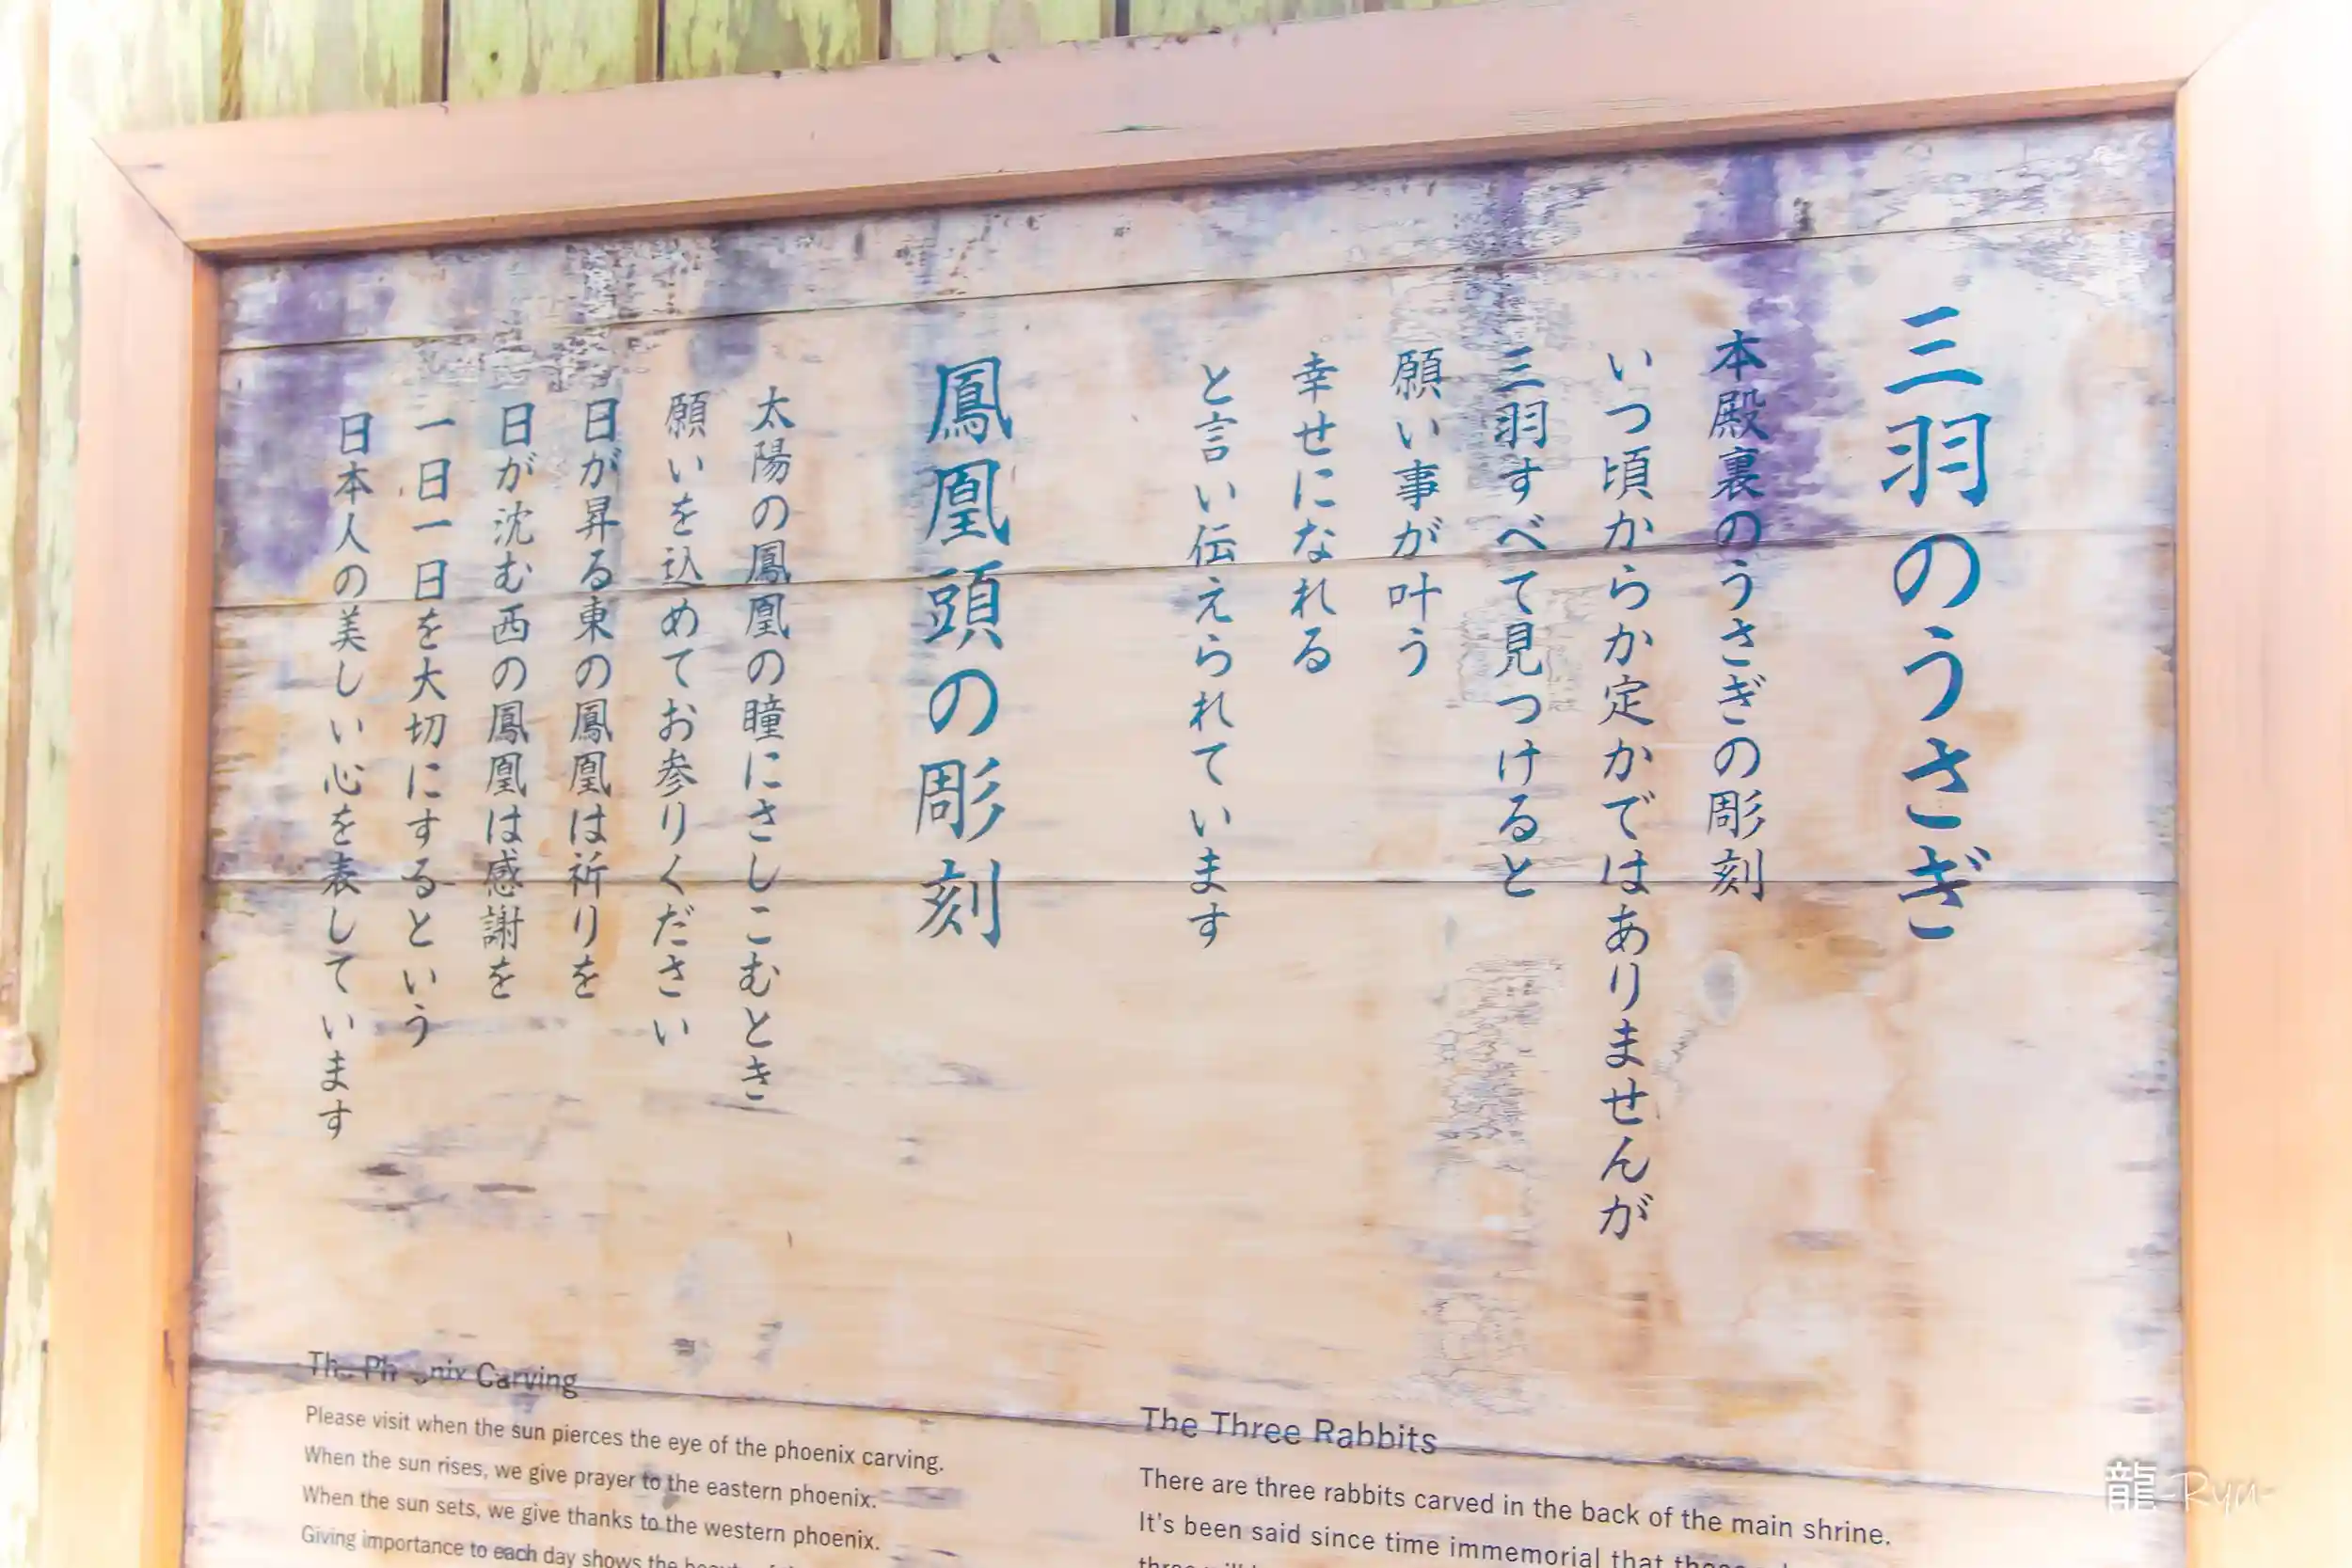 三羽のうさぎ
本殿裏のうさぎの彫刻
いつ頃からか定かではありませんが
三羽すべて見つけると
願い事が叶う
幸せになれる
と言い伝えられています
鳳凰頭の彫刻
太陽の鳳凰の瞳にさしこむとき
願いを込めてお参りください
日が昇る東の鳳凰は祈りを
日が沈む西の鳳凰は感謝を
一日一日を大切にするという
日本人の美しい心を表しています
The Phoenix Carving
Please visit when the sun pierces the eye of the phoenix carving.
When the sun rises, we give prayer to the eastern phoenix.
When the sun sets, we give thanks to the western phoenix.
Giving importance to each day shows the
The Three Rabbits
There are three rabbits carved in the back of the main shrine.
It's been said since time immemorial that
龍-Ryu-